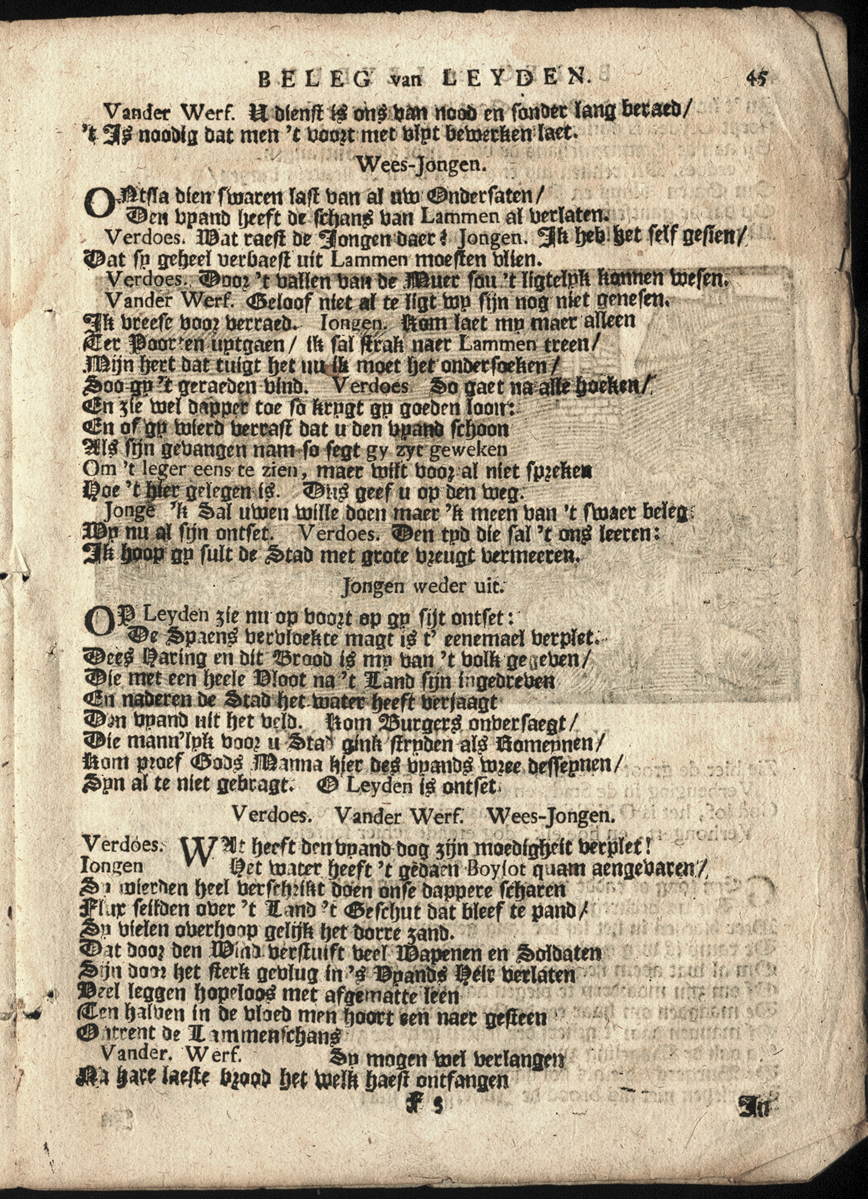 BELEG van LEYDEN. 45
Vander Werf. U dienst is ons van nood en sonder lang beraed/
't Is noodig dat men 't voort met vlyt bewerken laet.
Wees-Jongen.
ONtsla dien swaren last van al uw Ondersaten/
Den vyand heeft de schans van Lammen al verlaten.
Verdoes. Wat raest de Jongen daer? Jongen. Ik heb het self gesien/
Dat sy geheel verbaest uit Lammen moesten vlien.
Verdoes. Door 't vallen van de Muer sou 't ligtelyk konnen wesen.
Vander Werf. Geloof niet al te ligt wy sijn nog niet genesen.
Ik vreese voor verraed. Iongen. Kom laet my maer alleen
Ter Poorten uytgaen/ ik sal strak naer Lammen treen/
Mijn hert dat tuigt het nu ik moet het ondersoeken/
Soo gy 't geraeden vind. Verdoes So gaet na alle hoeken/
En zie wel dapper toe so krygt gy goeden loon:
En of gy wierd verrast dat u den vyand schoon
Als sijn gevangen nam so segt gy zyt geweken
Om 't leger eens te zien, maer wilt voor al niet spreken
Hoe 't hier gelegen is. Dus geef u op den weg.
Jonge 'k Sal uwen wille doen maer 'k meen van 't swaer beleg
Wy nu al sijn ontset. Verdoes. Den tyd die sal 't ons leeren:
Ik hoop gy sult de Stad met grote vreugt vermeeren.
Jongen weder uit.
OP Leyden zie nu op voort op gy sijt ontset:
De Spaens vervloekte magt is t' eenemael verplet.
Dees Haring en dit Brood is my van 't volk gegeven/
Die met een heele Vloot na 't Land sijn ingedreven
En naderen de Stad het water heeft verjaagt
Den vyand uit het veld. Kom Burgers onversaegt/
Die mann'lyk voor u Stad gink stryden als Romeynen/
Kom proef Gods Manna hier des vyands wree desseynen/
Syn al te niet gebragt. O Leyden is ontset.
Verdoes. Vander Werf. Wees-Jongen.
Verdoes. WAt heeft den vyand dog zijn moedigheit verplet!
Iongen Het water heeft 't gedaen Boysot quam aengevaren/
Sy wierden heel verschrikt doen onse dappere scharen
Flux seilden over 't Land 't Geschut dat bleef te pand/
Sy vielen overhoop gelijk het dorre zand.
Dat door den Wind verstuift veel Wapenen en Soldaten
Sijn door het sterk gevlug in 's Vyands Heir verlaten
Veel leggen hopeloos met afgematte leen
Ten halven in de vloed men hoort een naer gesteen
Ontrent de Lammenschans
Vander. Werf. Sy mogen wel verlangen
Na hare laeste brood het welk haest ontfangen
F 5 In